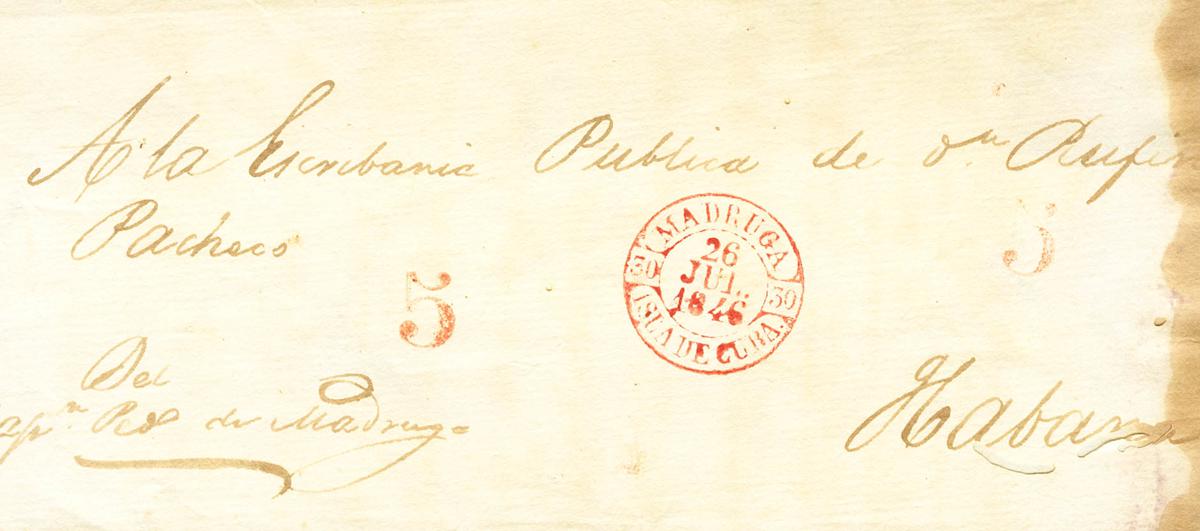 A la Escribania Publica de Dn. Rufin
Pacheco
5
5
MADRUGA
30
26
JUL.
1846
30
ISLA DE CUBA.
Del
Capn. Ped. de Madruga
Habana